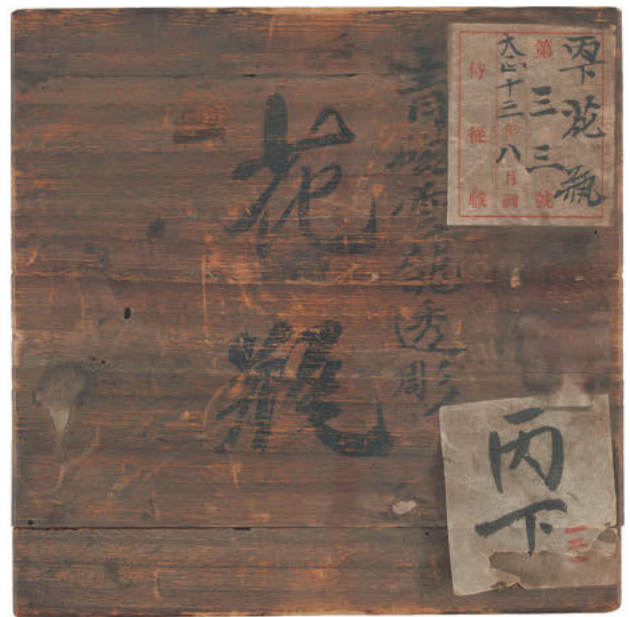 丙下花瓶
第三三號
大正十二年八月調
侍從職
青磁雲龍透彫
花瓶
丙下